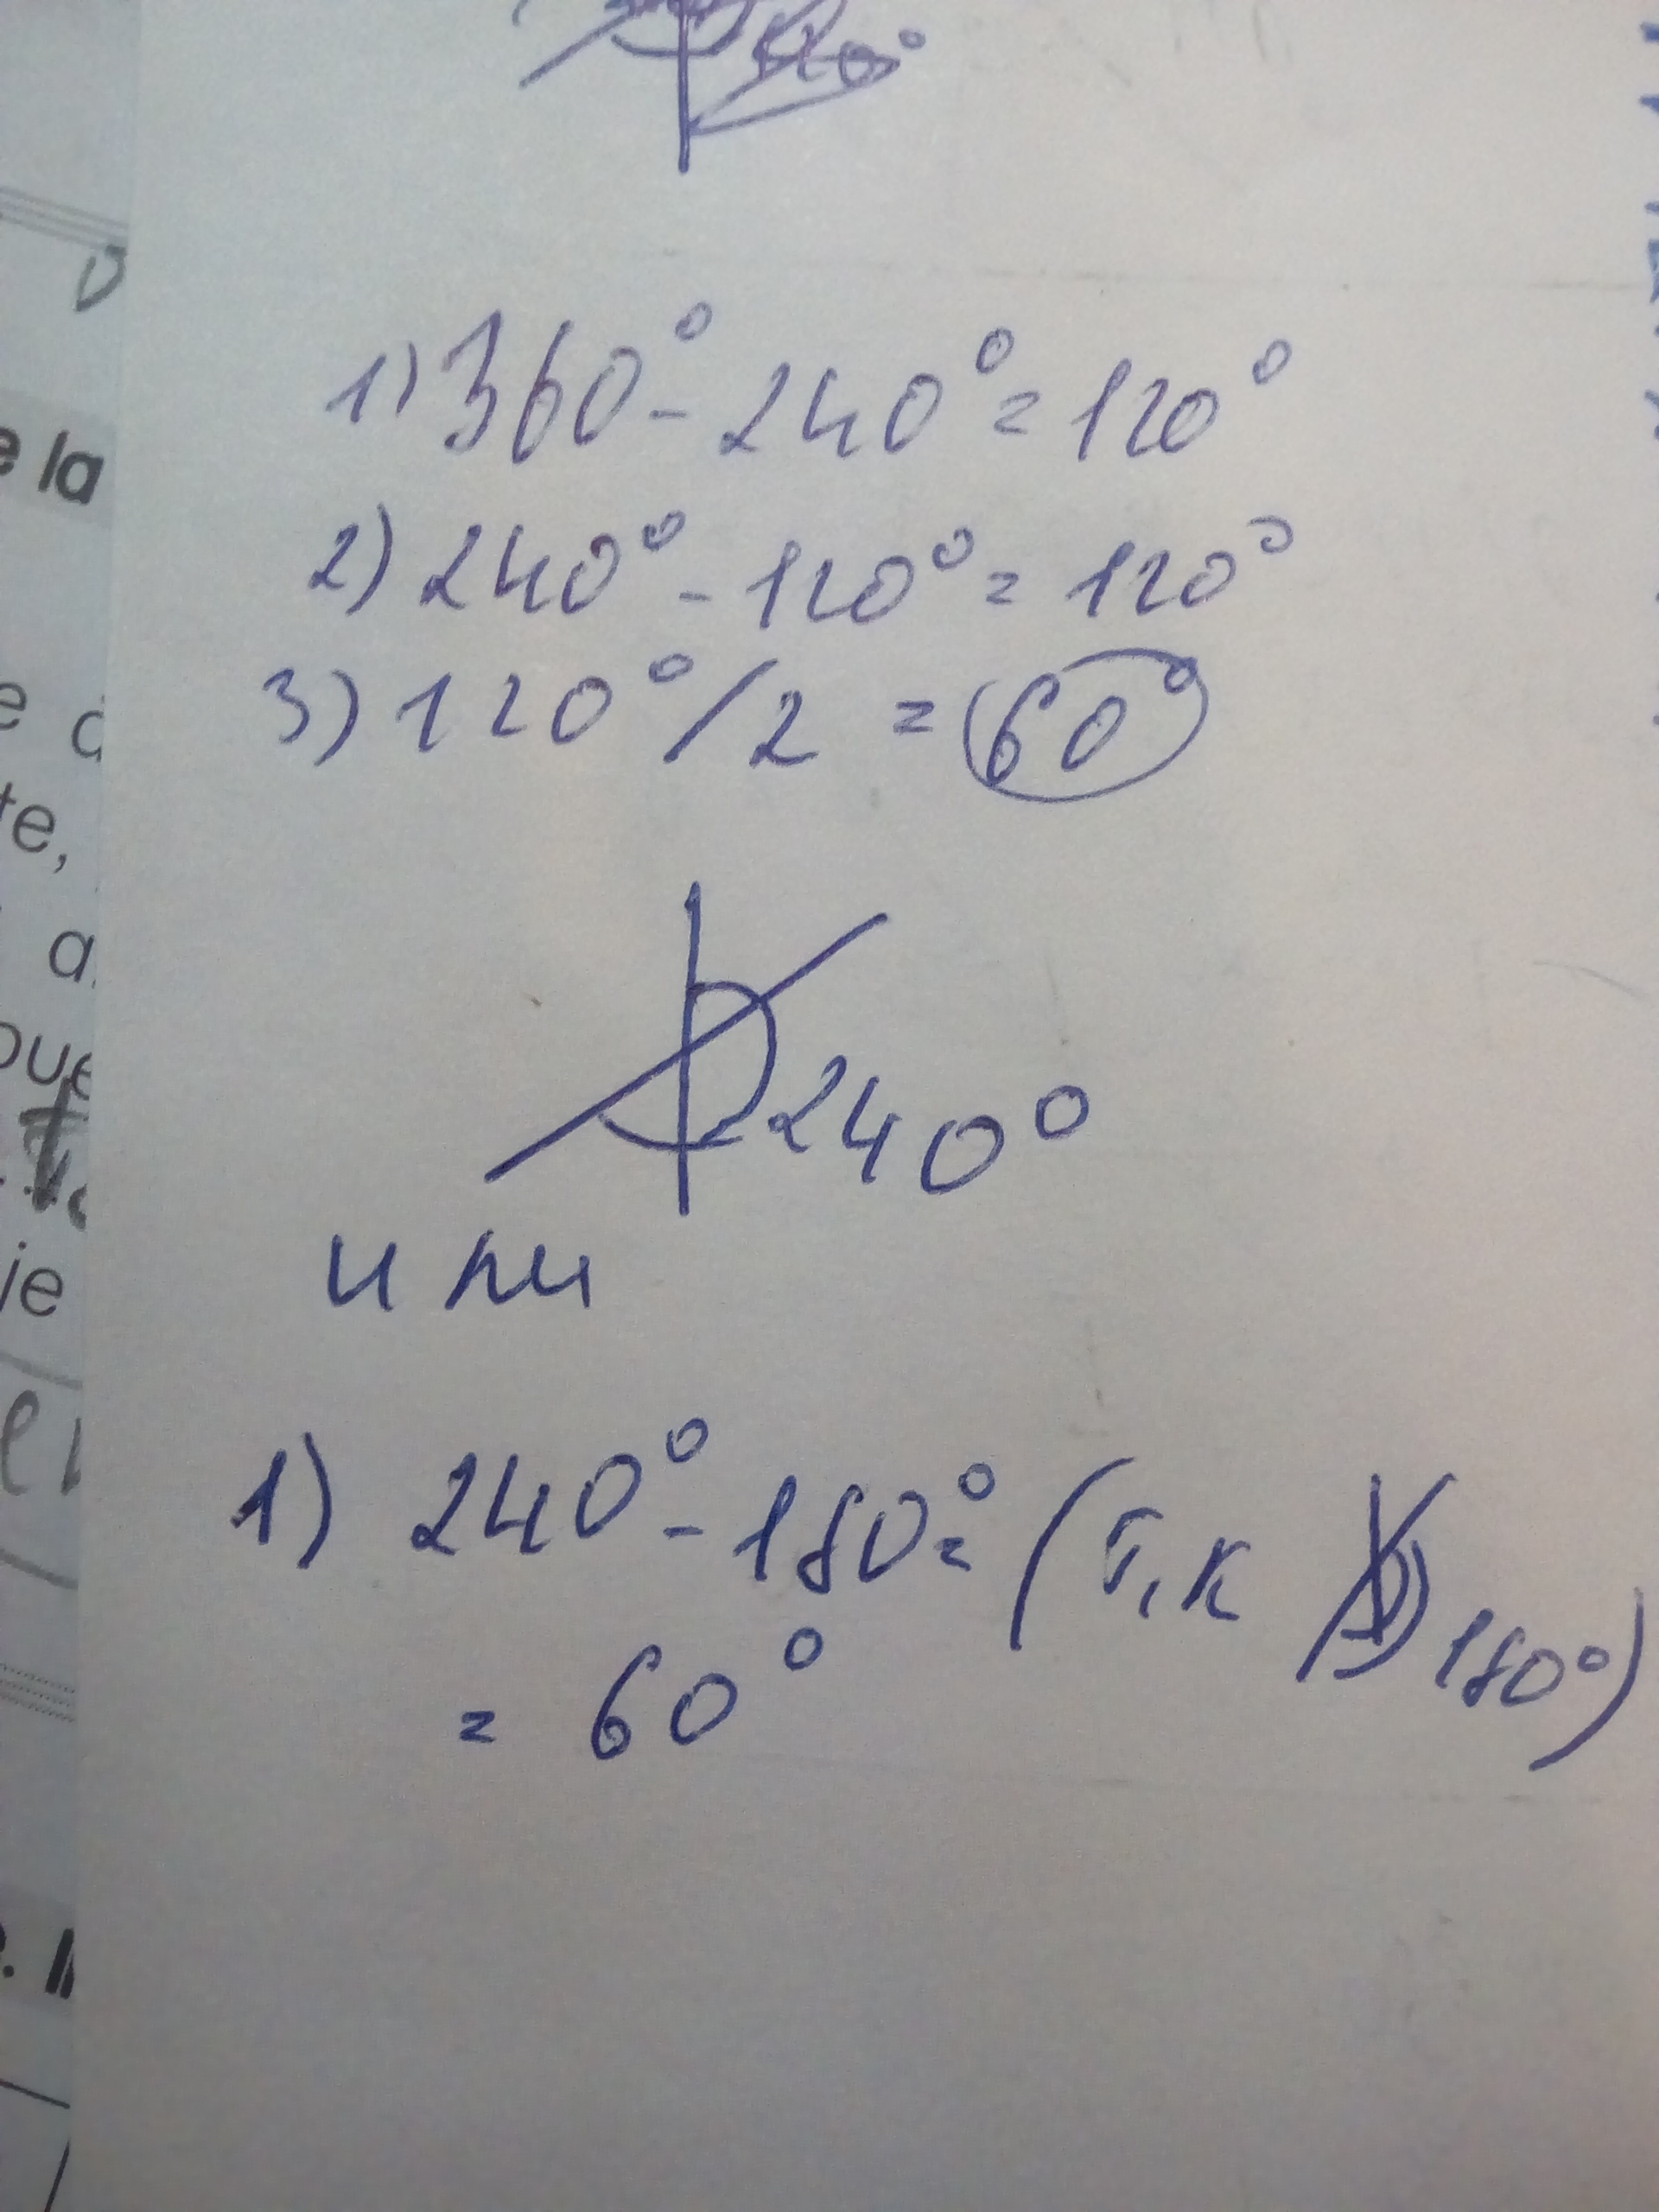 1) 360° - 240° = 120°
2) 240° - 120° = 120°
3) 120° / 2 = 60°
240°
или
1) 240° - 180° = (т.к 180°)
= 60°
e la
te,
a
oue
je